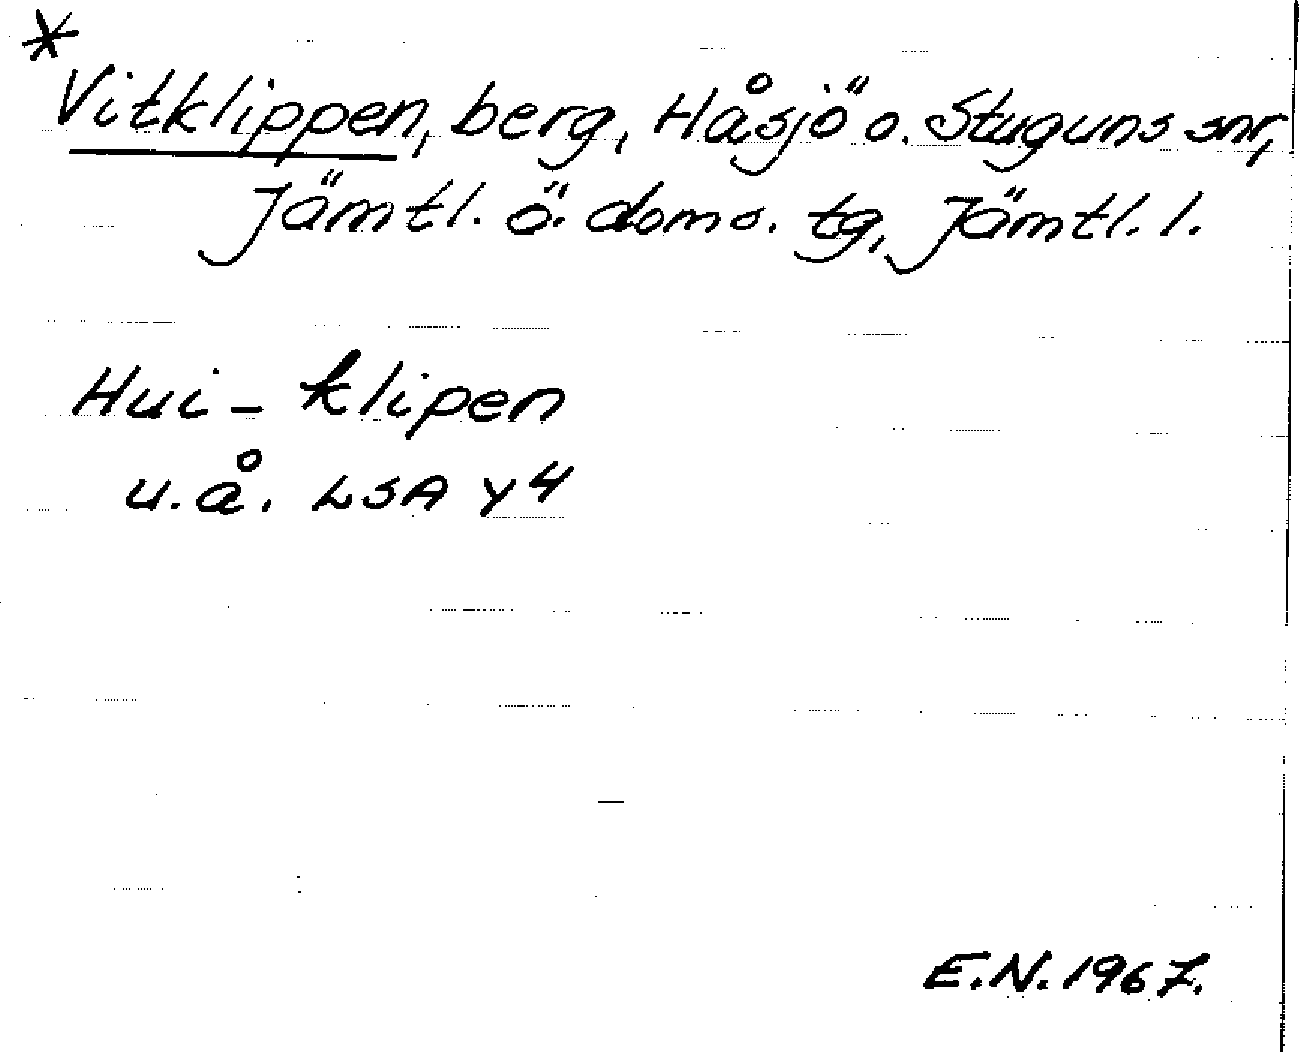 *
Vitklippen, berg, Håsjö o. Stuguns snr,
Jämtl. ö. doms. tg, Jämtl. l.
Hui - klipen
u.å. LSA Y4
E.N. 1967.